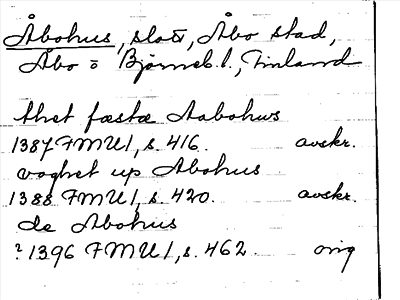 Åbohus, slott, Åbo stad,
Åbo o Björneb. l., Finland
thet fæstæ Aabohws
1387 FMU 1, s. 416. avskr.
voghet up Abohus
1388 FMU 1, s. 420. avskr.
de Abohus
? 1396 FMU 1, s. 462. orig